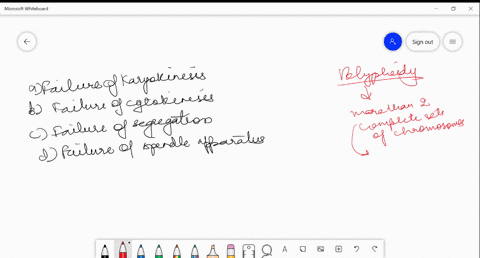 Microsoft Whiteboard
Sign out
a) Failure of Karyokinesis
b) Failure of cytokineses
c) Failure of segregation
d) Failure of spendle apparatus
Polyploidy
more than 2
complete sets
of chromosomes